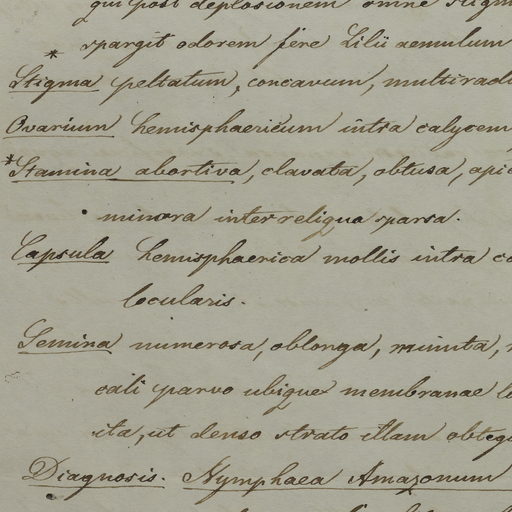 qui post deplosionem omne stigm
spargit odorem fere Lilii aemulum
* Stigma peltatum, concavum, multiradi
Ovarium hemisphaericum intra calycem,
* Stamina abortiva, clavata, obtusa, apic
minora inter reliqua sparsa.
Capsula hemisphaerica mollis intra ca
locularis.
Semina numerosa, oblonga, minuta,
cali parvo ubique membranae
ita, ut denso strato illam obteg
Diagnosis. Nymphaea Amazonum